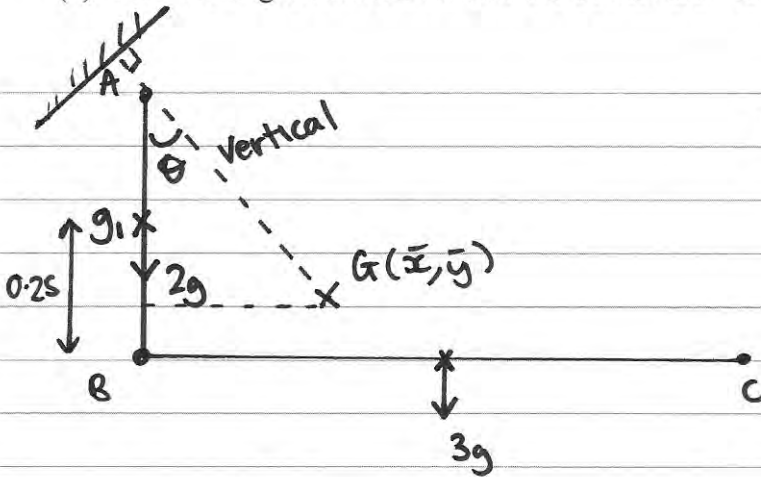 A
θ
vertical
g₁
0.25
2g
G(x̄,ȳ)
B
C
3g